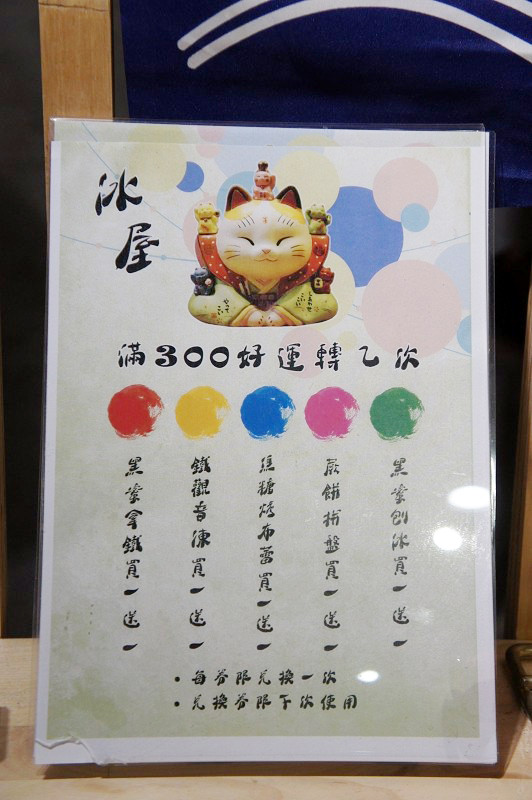 冰屋
滿300好運轉乙次
黑糖拿鐵買一送一
鐵觀音凍買一送一
焦糖烤布蕾買一送一
蕨餅拼盤買一送一
黑糖刨冰買一送一
• 每券限兌換一次
• 兌換券限下次使用